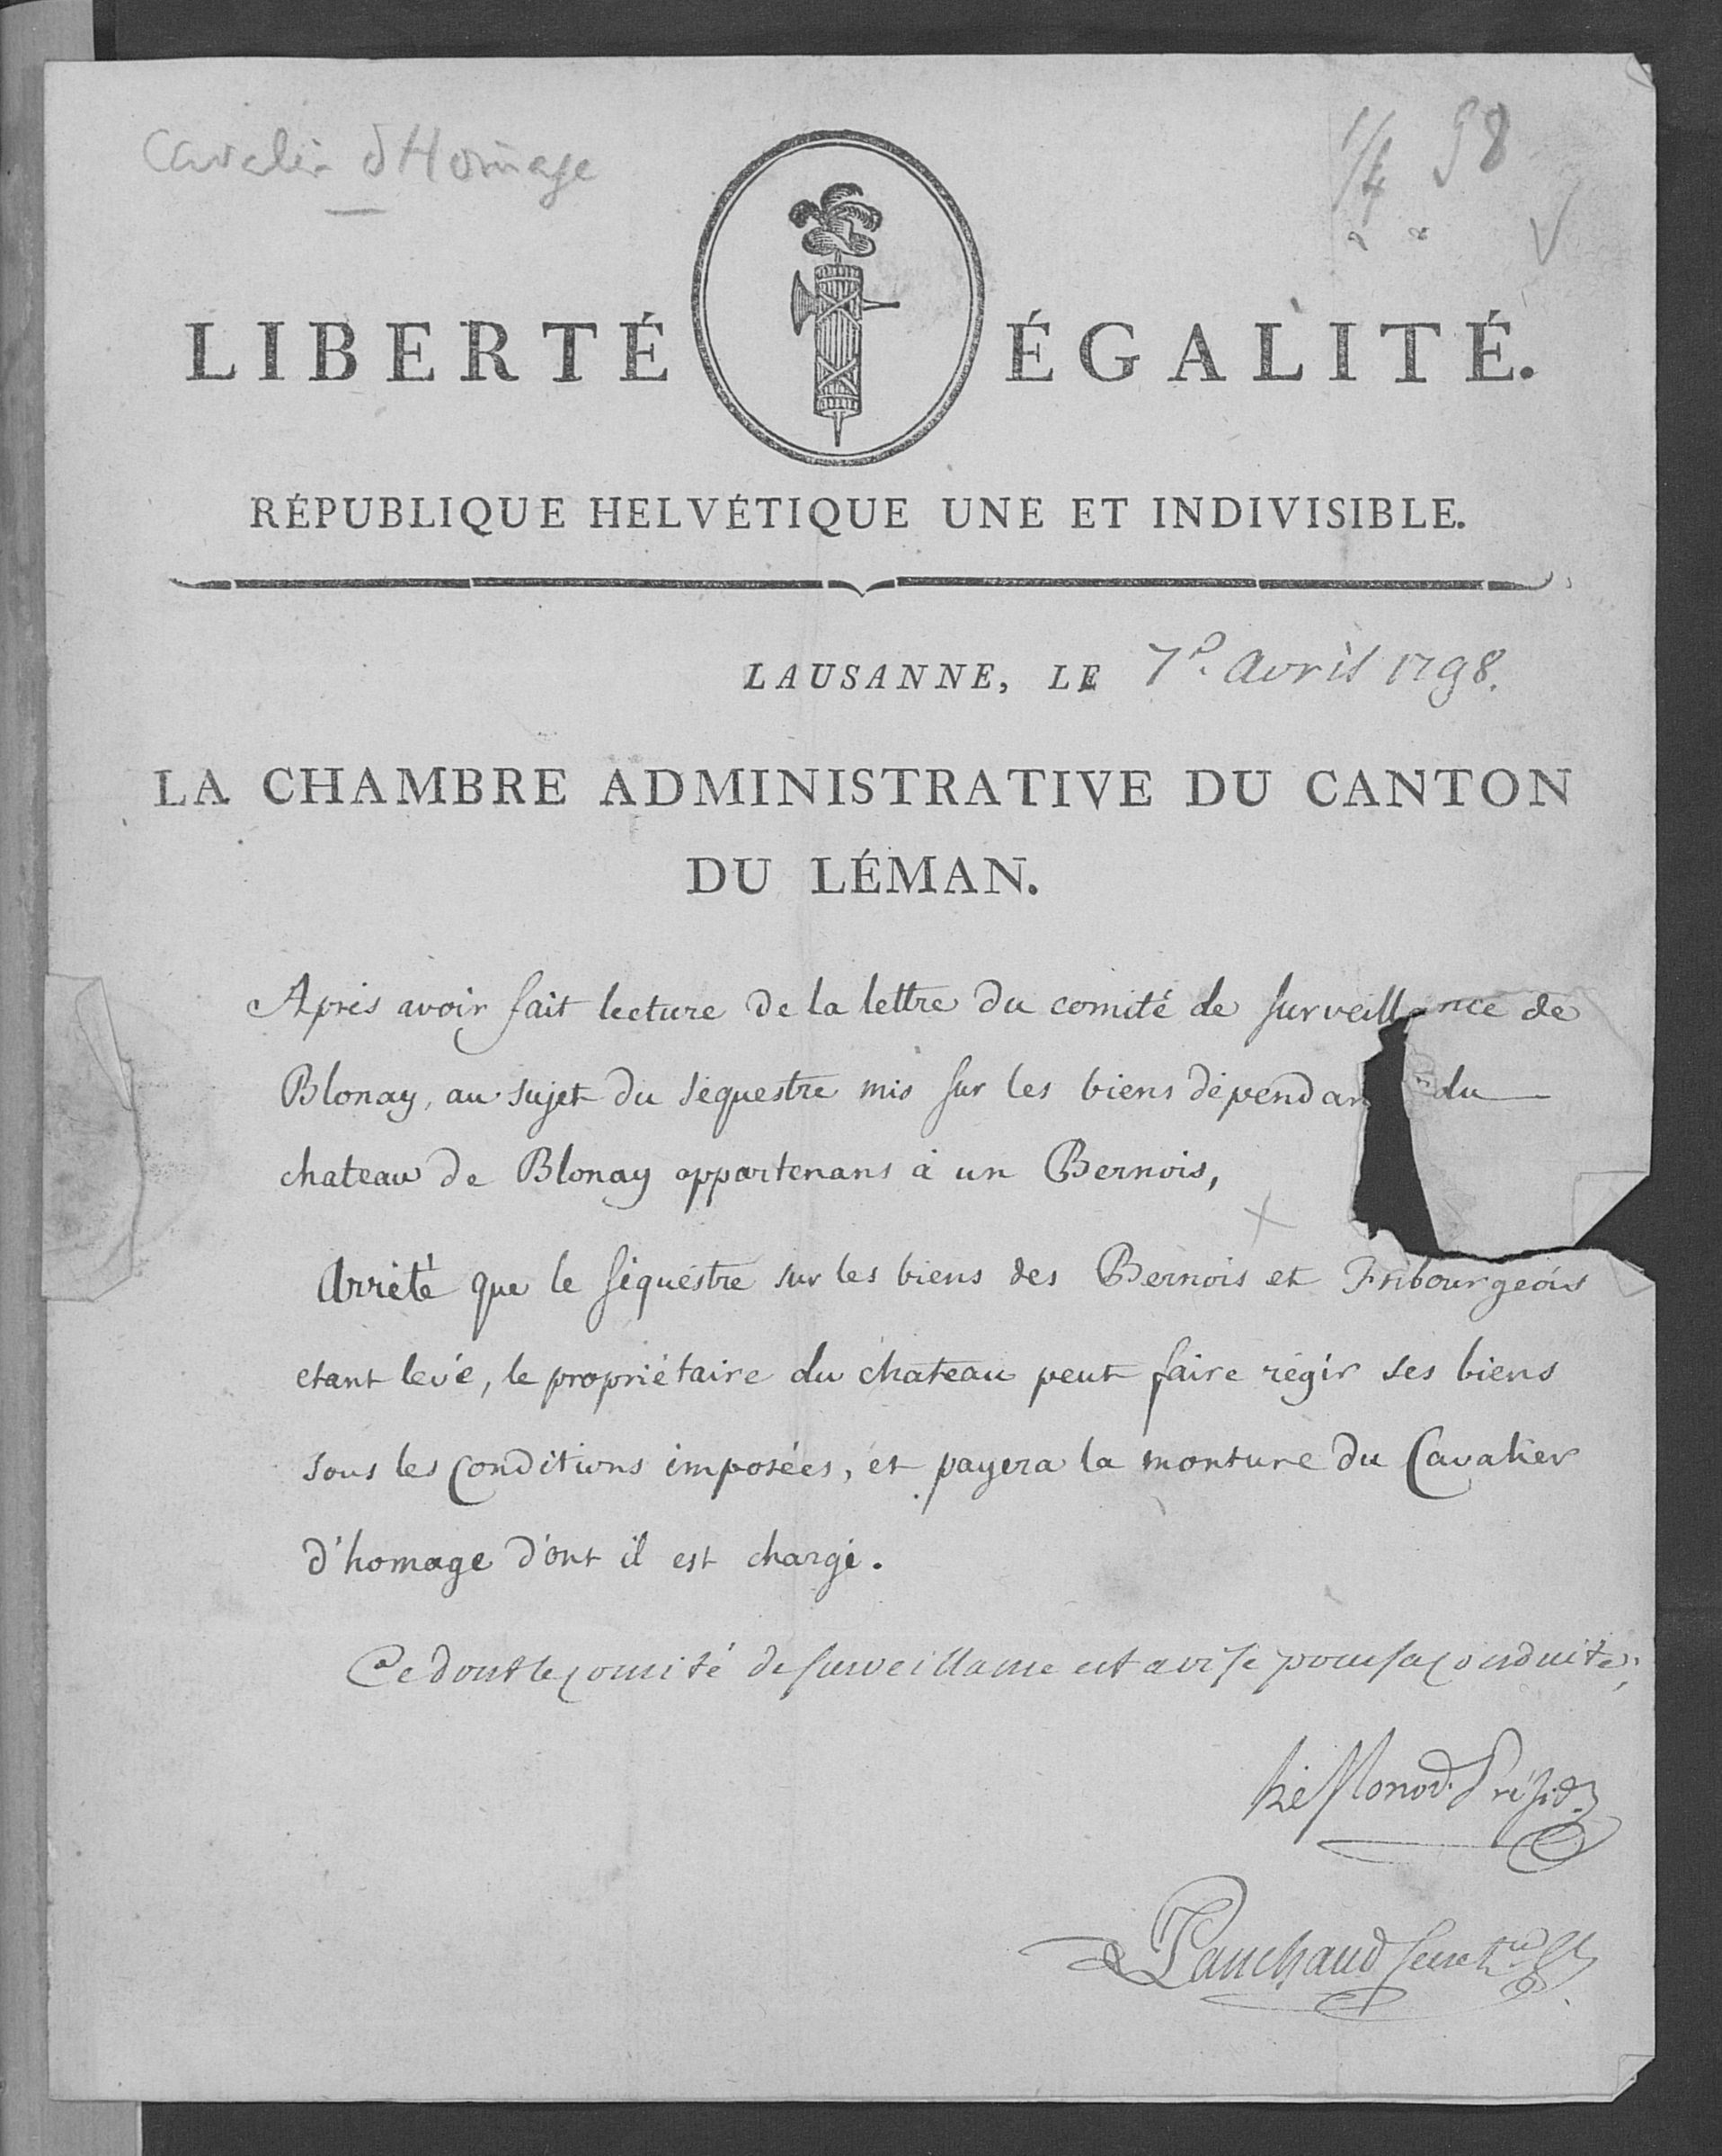 Cavalier d'Homage
1/4 98
LIBERTÉ ÉGALITÉ.
RÉPUBLIQUE HELVÉTIQUE UNE ET INDIVISIBLE.
LAUSANNE, LE 7e. avril 1798.
LA CHAMBRE ADMINISTRATIVE DU CANTON
DU LÉMAN.
Après avoir fait lecture de la lettre du comité de surveillance de
Blonay, au sujet du séquestre mis sur les biens dépendan du
chateau de Blonay appartenans à un Bernois,
Arrêté que le séquestre sur les biens des Bernois et Fribourgeois
etant levé, le propriétaire du chateau peut faire régir ses biens
sous les conditions imposées, et payera la monture du Cavalier
d'homage d'ont il est chargé.
Ce dont le comité de surveillance est avisé pour sa conduite,
Monod. Présid.
Panchaud secret.re